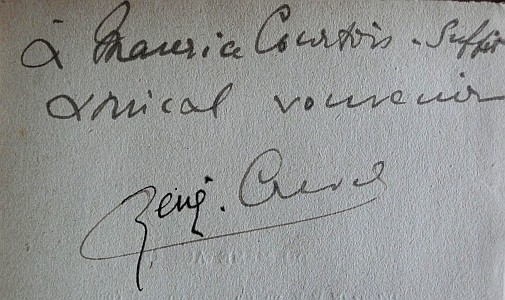 à Maurice Courtois-Suffit
amical souvenir
René Crevel